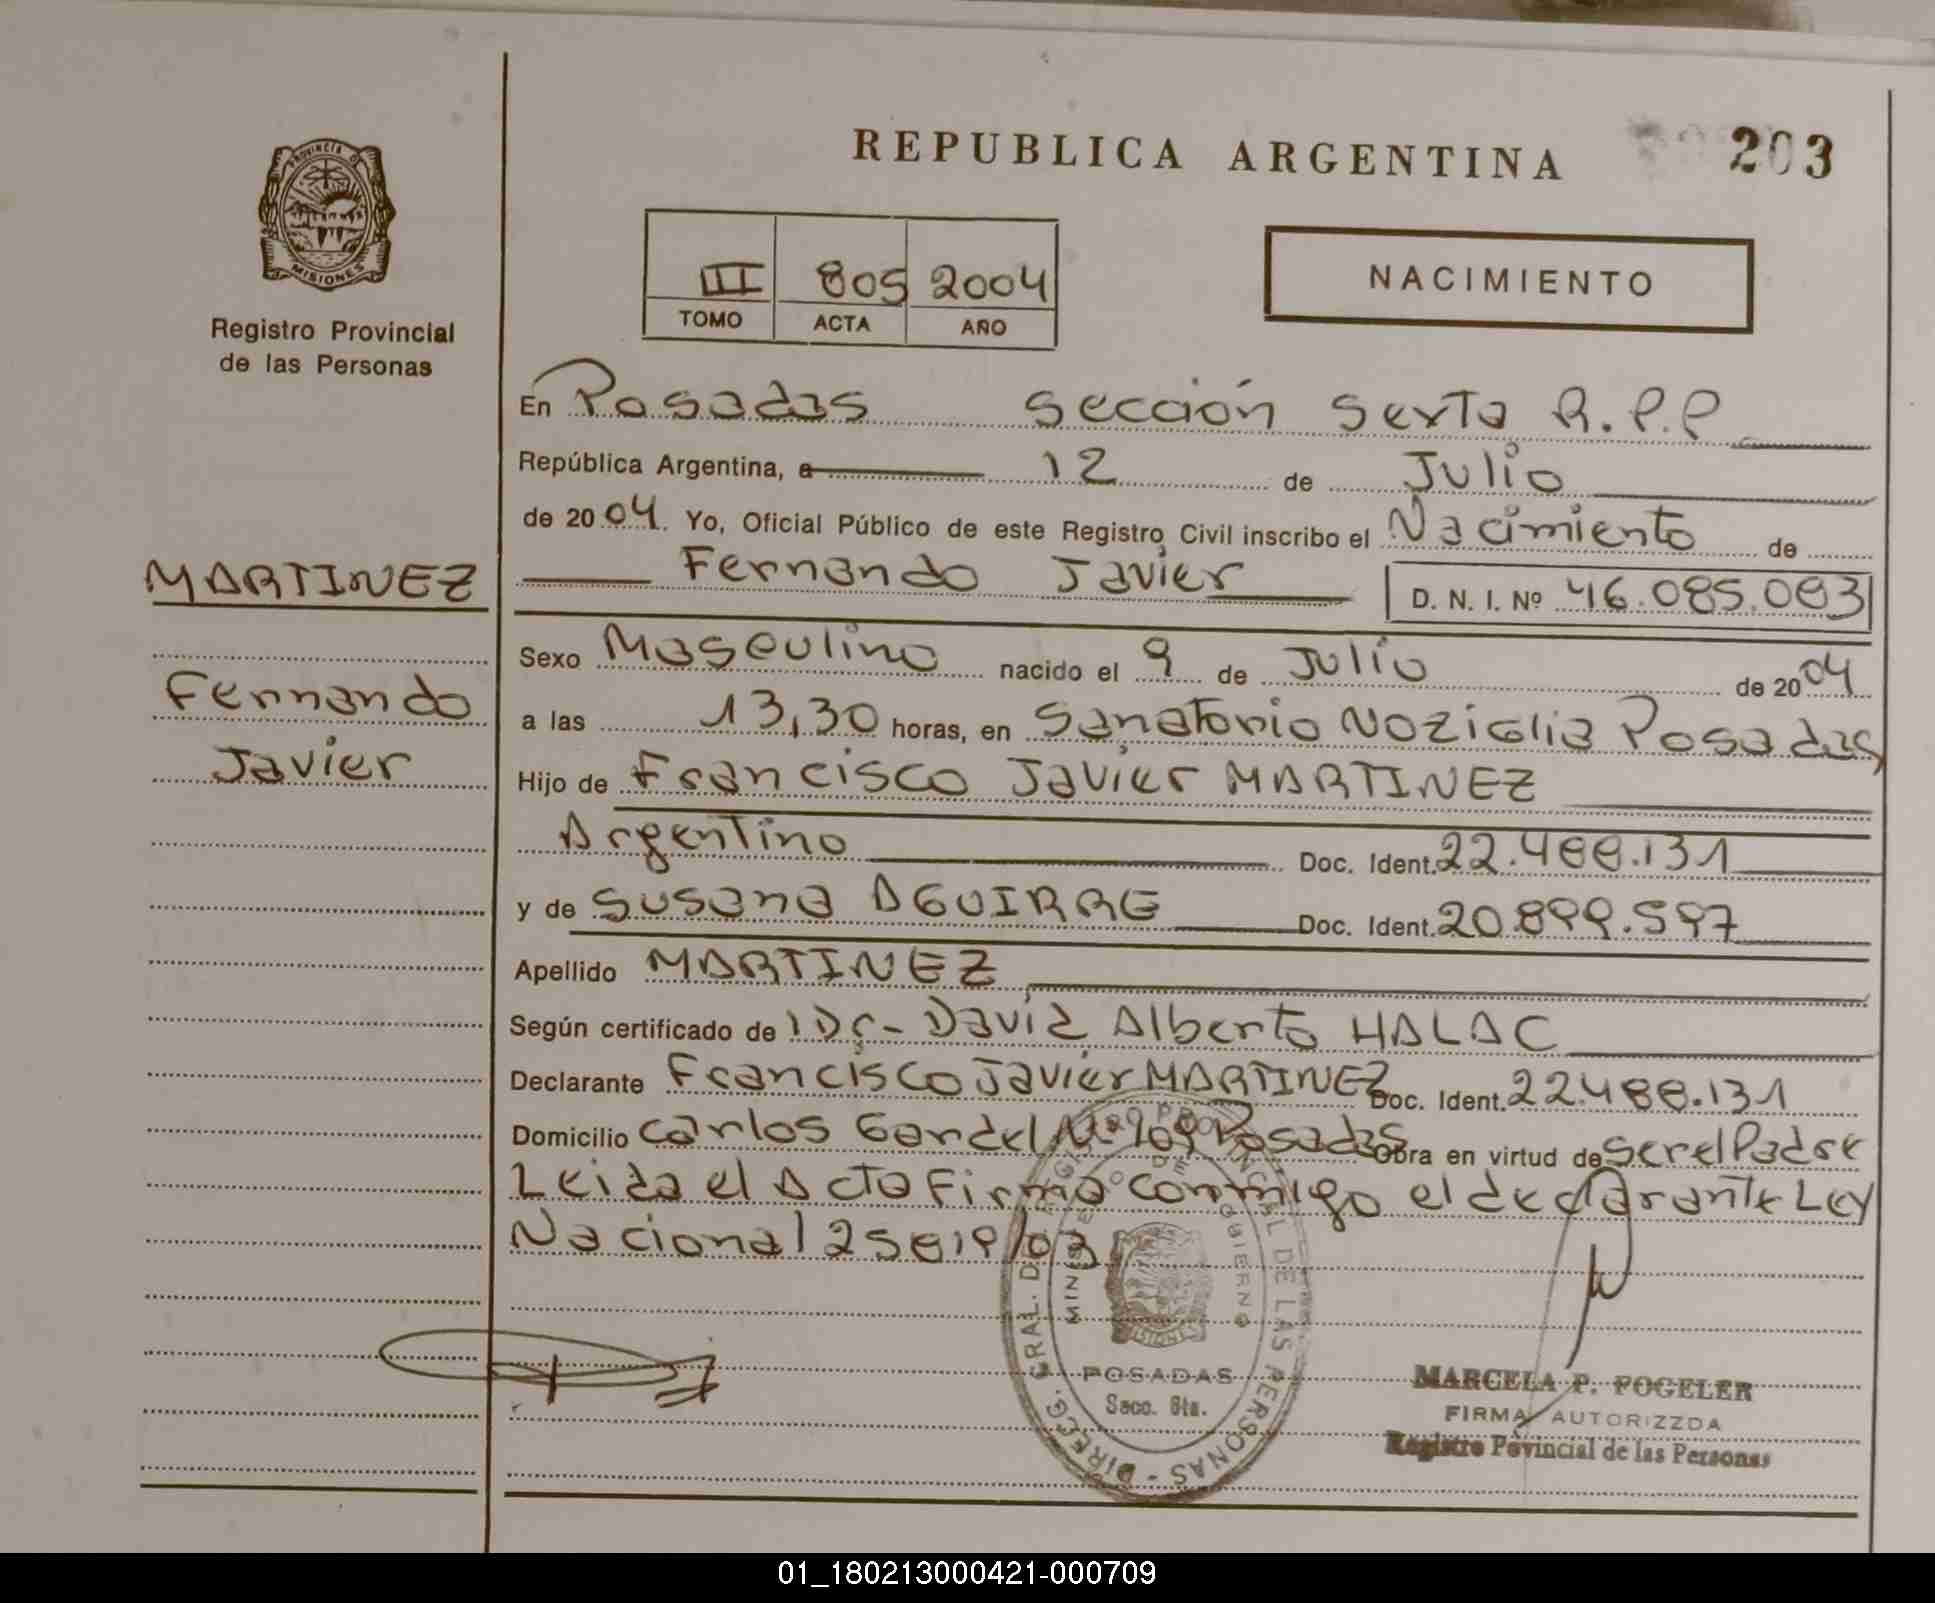 REPUBLICA ARGENTINA
203
PROVINCIA DE
MISIONES
Registro Provincial
de las Personas
III 805 2004
TOMO ACTA AÑO
NACIMIENTO
En Posadas Sección Sexta R.P.P
República Argentina, a 12 de Julio
de 2004. Yo, Oficial Público de este Registro Civil inscribo el Nacimiento de
Fernando Javier D. N. I. Nº 46.085.083
MARTINEZ
Fernando
Javier
Sexo Masculino nacido el 9 de Julio de 2004
a las 13,30 horas, en Sanatorio NOZiGlia Posadas
Hijo de Francisco Javier MARTINEZ
Argentino Doc. Ident. 22.488.131
y de Susana AGUIRRE Doc. Ident. 20.899.597
Apellido MARTINEZ
Según certificado de Dr- David Alberto HALAC
Declarante Francisco Javier MARTINEZ Doc. Ident. 22.488.131
Domicilio Carlos Gardel Posadas Obra en virtud de ser el Padre
Leida el Acta Firma conmigo el declarante Ley
Nacional 25819/03
DIREC. GRAL. DEL REGISTRO PROVINCIAL DE LAS PERSONAS -
MINISTERIO DE GOBIERNO
MISIONES
POSADAS
Secc. 6ta.
MARCELA P. POGELER
FIRMA AUTORIZZDA
Registro Povincial de las Personas
01_180213000421-000709